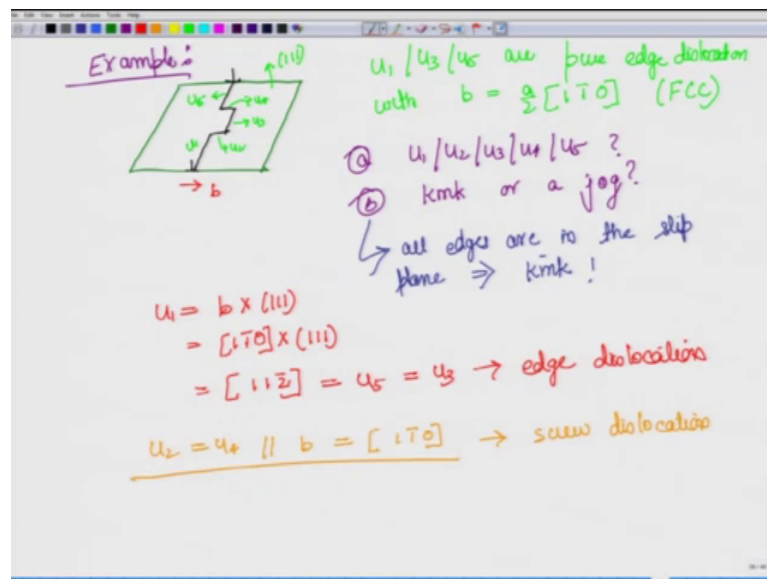 Example:
(111)
u5 u4
u3
u1 u2
b
u1/u3/u5 are pure edge dislocation
with b = a/2 [1 1̄ 0] (FCC)
(a) u1/u2/u3/u4/u5 ?
(b) kink or a jog?
all edges are in the slip
plane ⇒ kink !
u1 = b × (111)
= [1 1̄ 0] × (111)
= [1 1 2̄] = u5 = u3 → edge dislocations
u2 = u4 // b = [1 1̄ 0] → screw dislocations